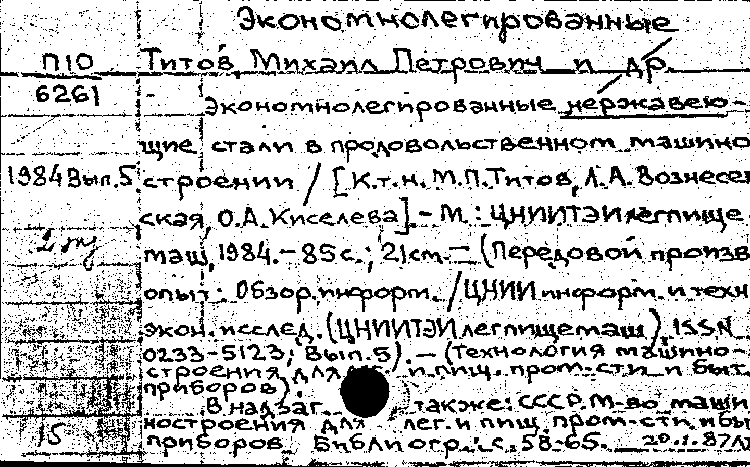 Экономнолегированные
П10 Титов, Михаил Петрович и др.
6261 Экономнолегированные нержавею-
щие стали в продовольственном машино
1984 Вып.5. строении / [К.т.н. М.П.Титов, Л.А.Вознесен
ская, О.А.Киселева]. - М.: ЦНИИТЭИлегпище
2 экз
маш, 1984. - 85 с.; 21см. - (Передовой произв
опыт: Обзор.информ. / ЦНИИ информ. и техн
экон. исслед. (ЦНИИТЭИлегпищемаш), ISSN
0233-5123; Вып.5). - (Технология машино-
строения для и пищ. пром-сти и быт
приборов).
В надзаг. также: СССР. М-во маши
ностроения для лег. и пищ пром-сти и бы
15 приборов. Библиогр.: с. 58-65. 20.1.87